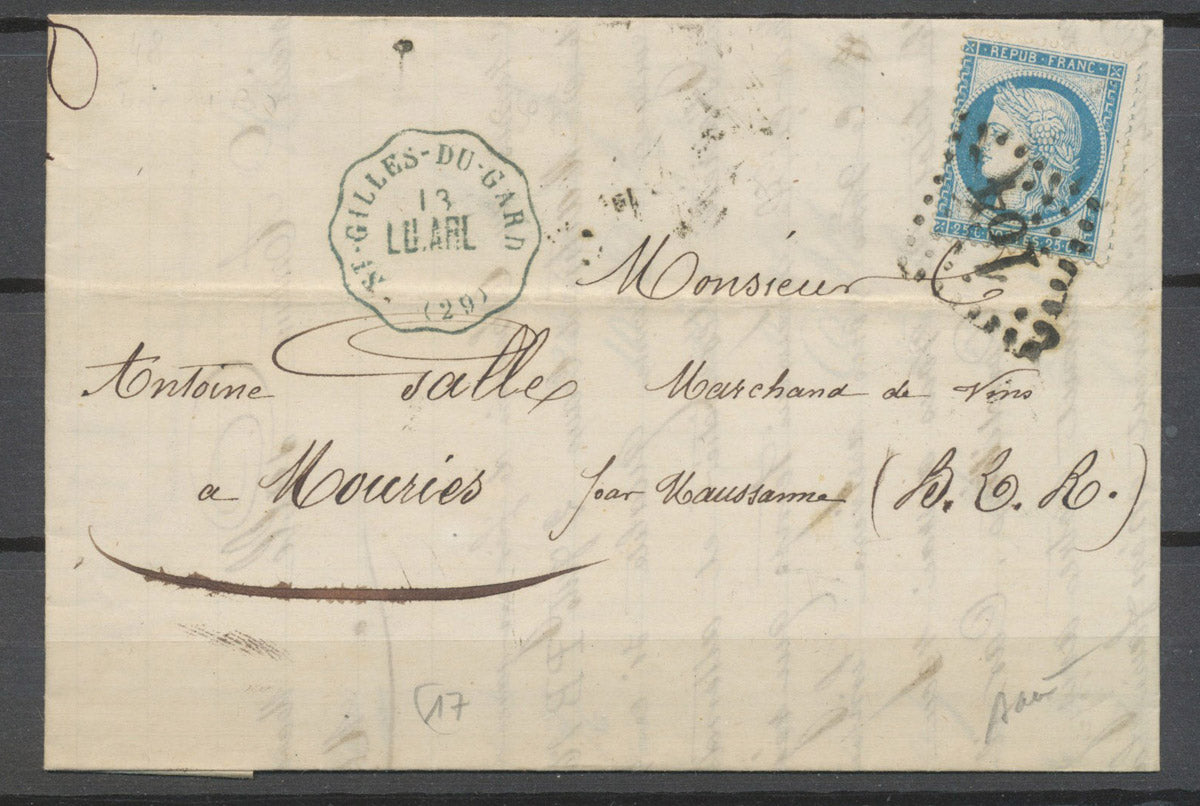 REPUB·FRANC·
ST-GILLES-DU-GARD
13
LU.ARL
(29)
Monsieur
Antoine Salle Marchand de Vins
a Mouriès par Maussanne (B. D. R.)
17